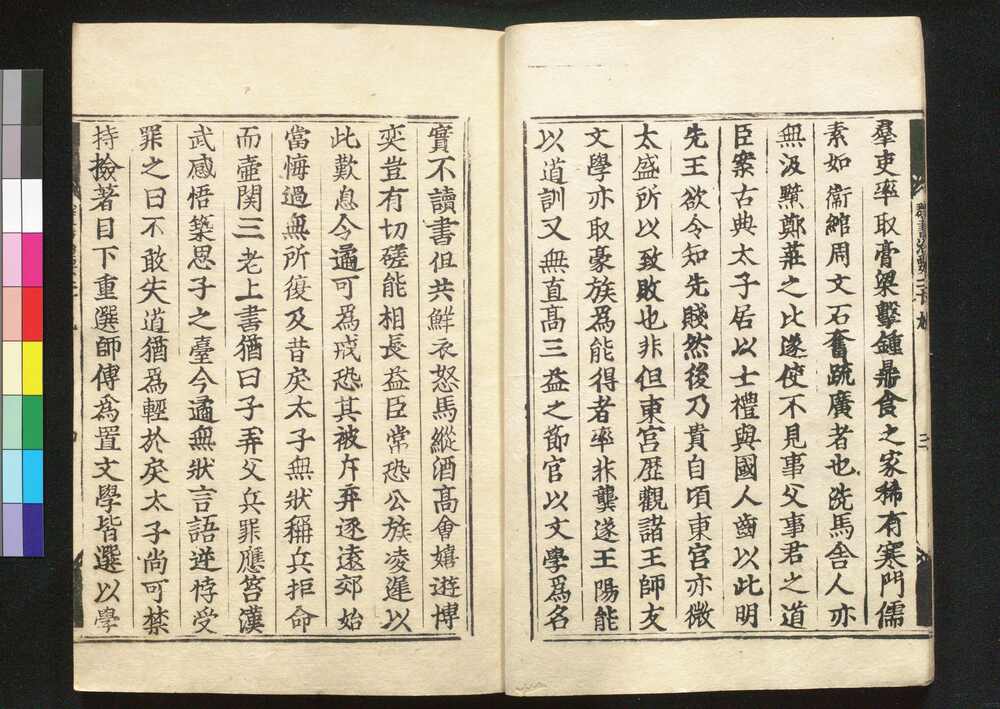 羣吏率取膏粱擊鍾鼎食之家稀有寒門儒
素如衞綰周文石奮疏廣者也洗馬舍人亦
無汲黯鄭莊之比遂使不見事父事君之道
臣案古典太子居以士禮與國人齒以此明
先王欲令知先賤然後乃貴自頃東宮亦微
太盛所以致敗也非但東宮歷觀諸王師友
文學亦取豪族爲能得者率非龔遂王陽能
以道訓又無直髙三益之節官以文學爲名
實不讀書但共鮮衣怒馬縱酒髙會嬉遊博
奕豈有切磋能相長益臣常恐公族凌遲以
此歎息今遹可爲戒恐其被斥弃逐遠郊始
當悔過無所復及昔戾太子無狀稱兵拒命
而壷関三老上書猶曰子弄父兵罪應笞漢
武感悟築思子之臺今遹無狀言語逆悖受
罪之日不敢失道猶爲輕於戾太子尚可禁
持撿著目下重選師傅爲置文學皆選以學
羣書治要二十九
三